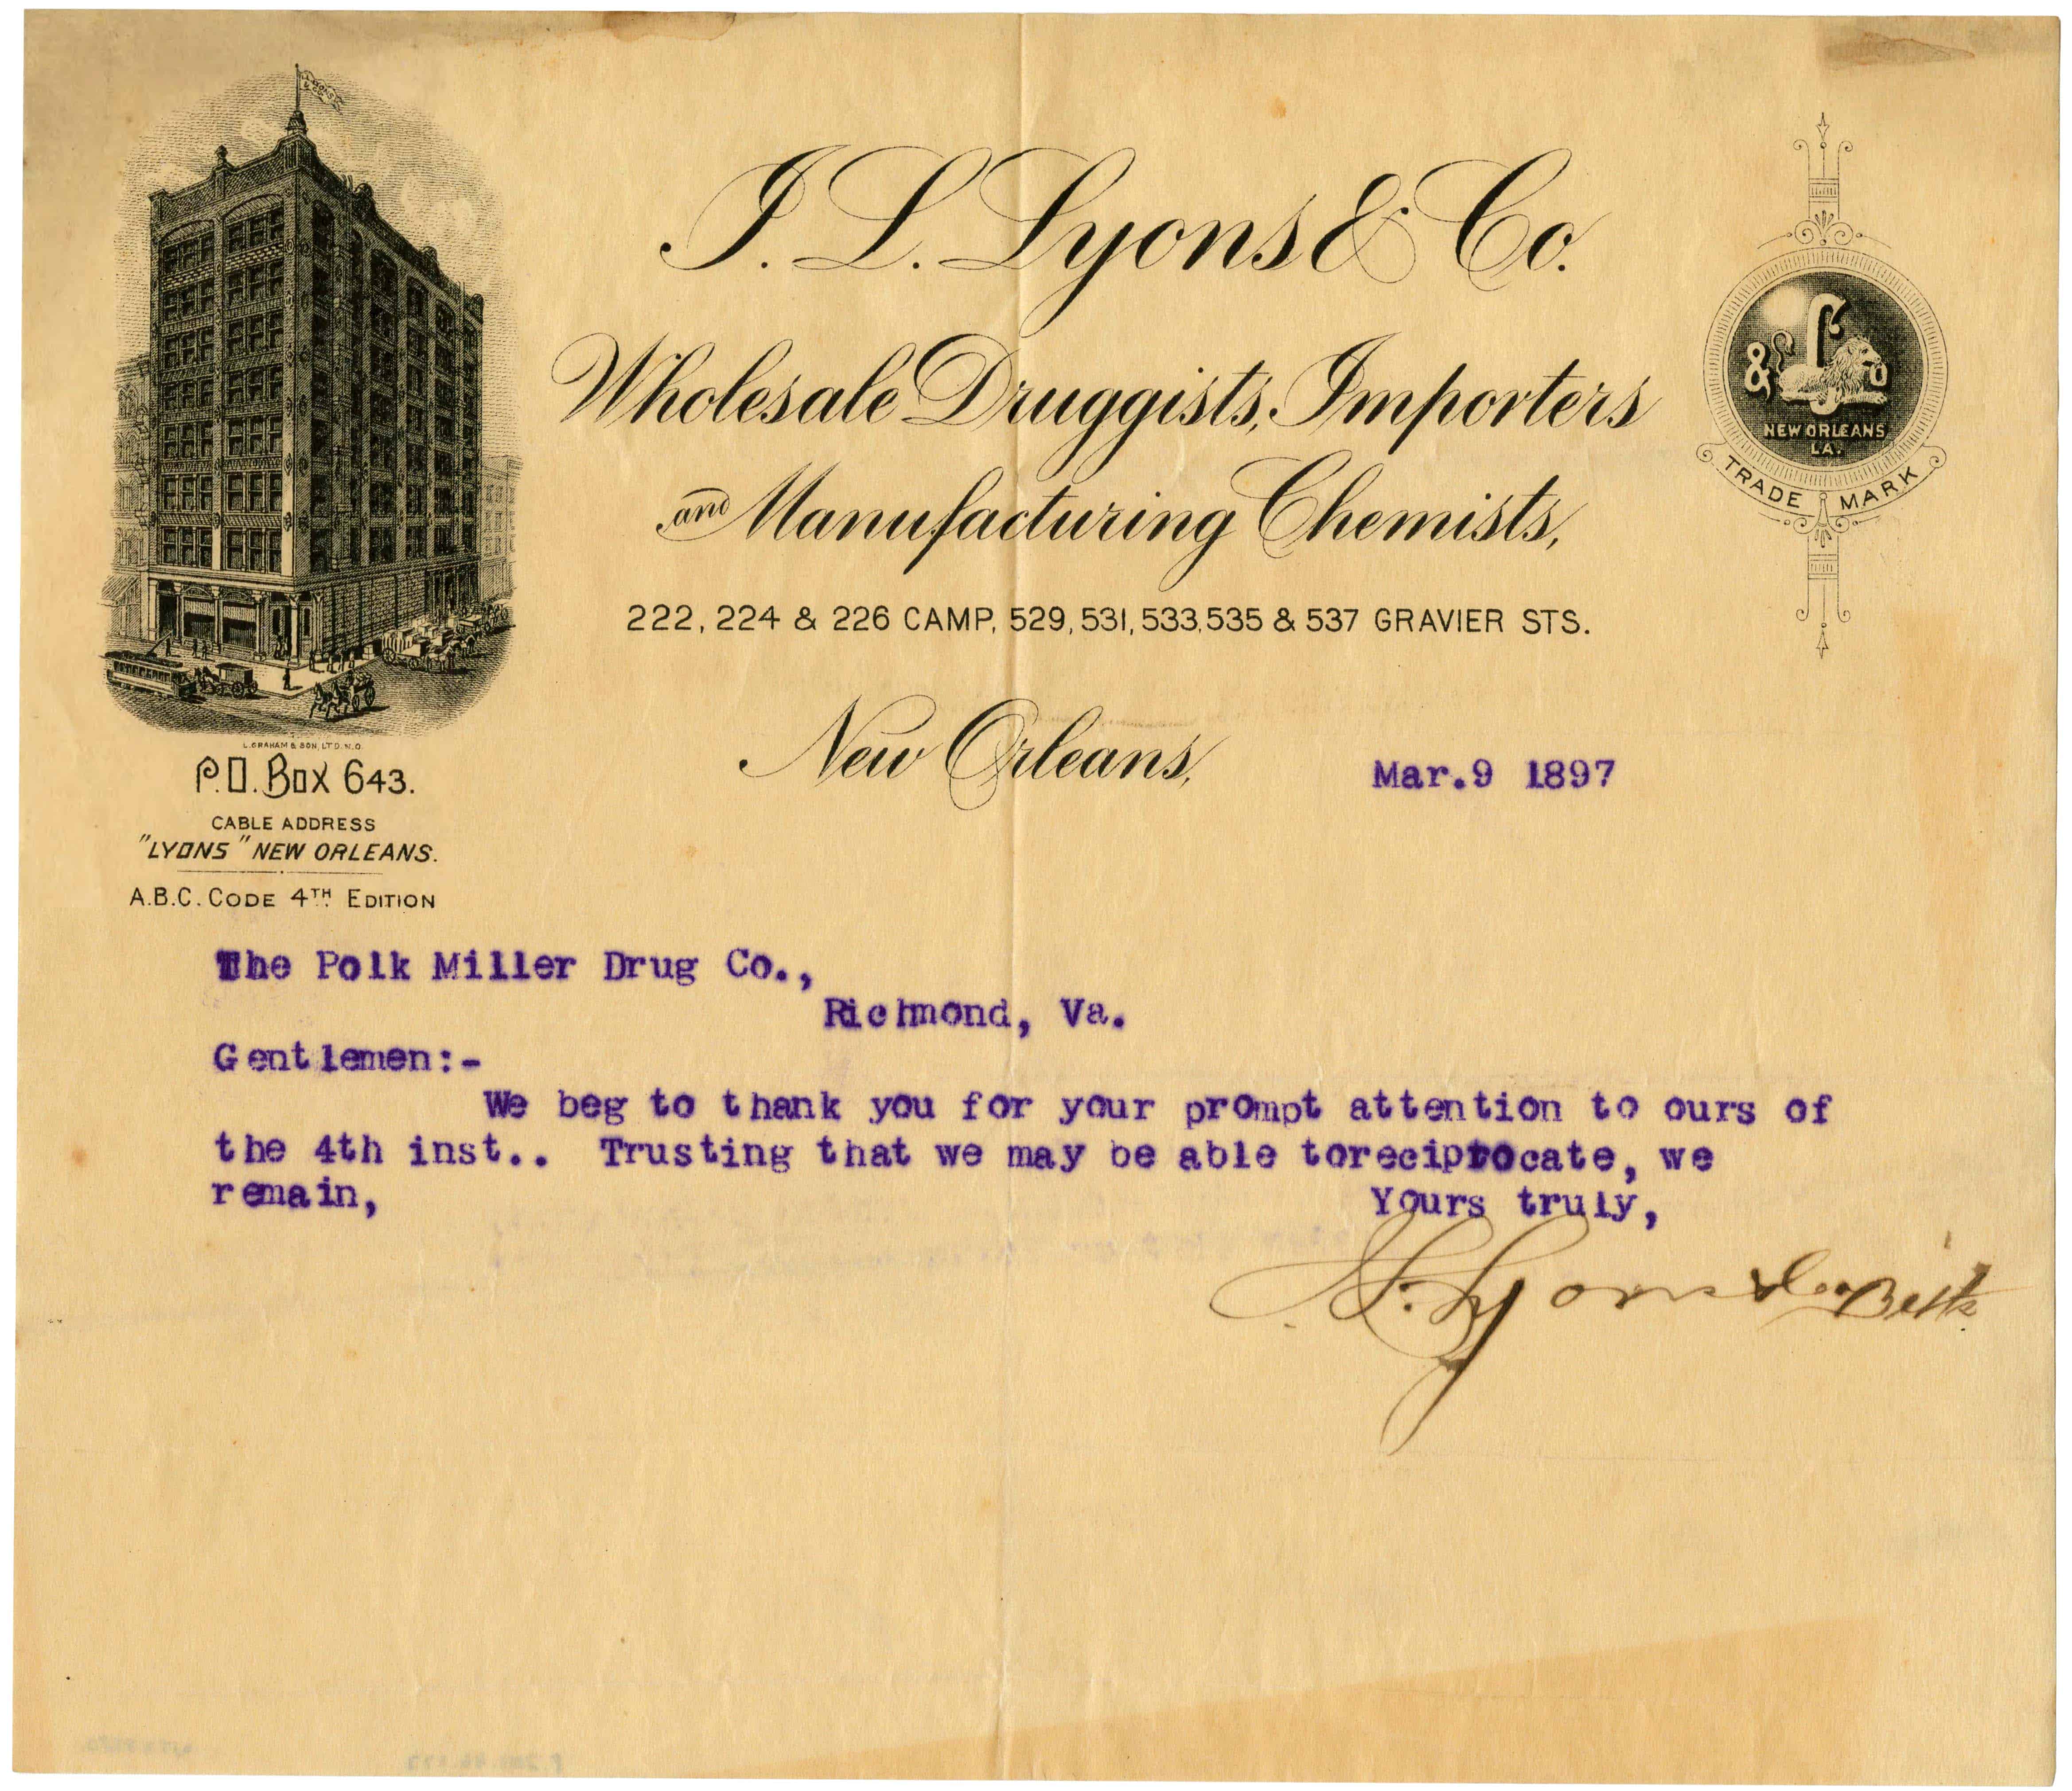 I. L. Lyons & Co.
Wholesale Druggists, Importers
and Manufacturing Chemists,
222, 224 & 226 CAMP, 529, 531, 533, 535 & 537 GRAVIER STS.
& L Co
NEW ORLEANS
LA.
TRADE MARK
L. GRAHAM & SON, LTD. N.O.
P.O. BOX 643.
CABLE ADDRESS
"LYONS" NEW ORLEANS.
A.B.C. CODE 4TH EDITION
New Orleans, Mar.9 1897
The Polk Miller Drug Co.,
Richmond, Va.
Gentlemen:-
We beg to thank you for your prompt attention to ours of
the 4th inst.. Trusting that we may be able toreciprocate, we
remain,
Yours truly,
I. L. Lyons & Co